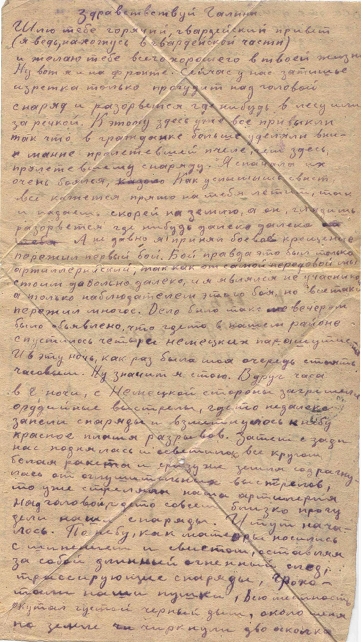 Здравствуй Галина
Шлю тебе горячий, гвардейский привет
(я ведь нахожусь в гвардейской части)
и желаю тебе всего хорошего в твоей жизни
Ну вот я и на фронте. Сейчас у нас затишье
изредка только прогудит над головой
снаряд и разорвется где нибудь в лесу или
за речкой. К этому здесь уже все привыкли
так что в гражданке больше уделяли вни-
мание пролетевшей пчеле, чем здесь,
пролетевшему снаряду. Я сначала их
очень боялся, как услышишь свист
всё кажется прямо на тебя летит, так
и падаешь скорей на землю, а он, глядишь
разорвется где нибудь далеко далеко от
тебя. А не давно я принял боевое крещение
пережил первый бой. Бой правда это был только
артиллерийский, так как от самой передовой мы
стоим довольно далеко, и я являлся не участником
а только наблюдателем этого боя, но всё таки
пережил многое. Дело было так вечером
было объявлено, что где то в нашем районе
спустилось четыре немецких парашютиста
И в эту ночь, как раз была моя очередь стоять
часовым. Ну значит я стою. Вдруг часа
в 2 ночи, с Немецкой стороны загремели
орудийные выстрелы, где то недалеко
запели снаряды и взметнулось к небу
красное пламя разрывов. Затем с зади
нас поднялась и осветила все кругом
белая ракета и сразу же земля содрогну-
лась от оглушительных выстрелов,
то уже стреляла наша артиллерия
Над головой где то совсем близко прогу
дели наши снаряды. И тут нача-
лось. По небу, как метеоры носились
с шипением и свистом, оставляя
за собой длинный огненный след
трассирующие снаряды, грохо-
тали наши пушки, всю местность
окутал густой черный дым, около меня
по земле чиркнули два осколка